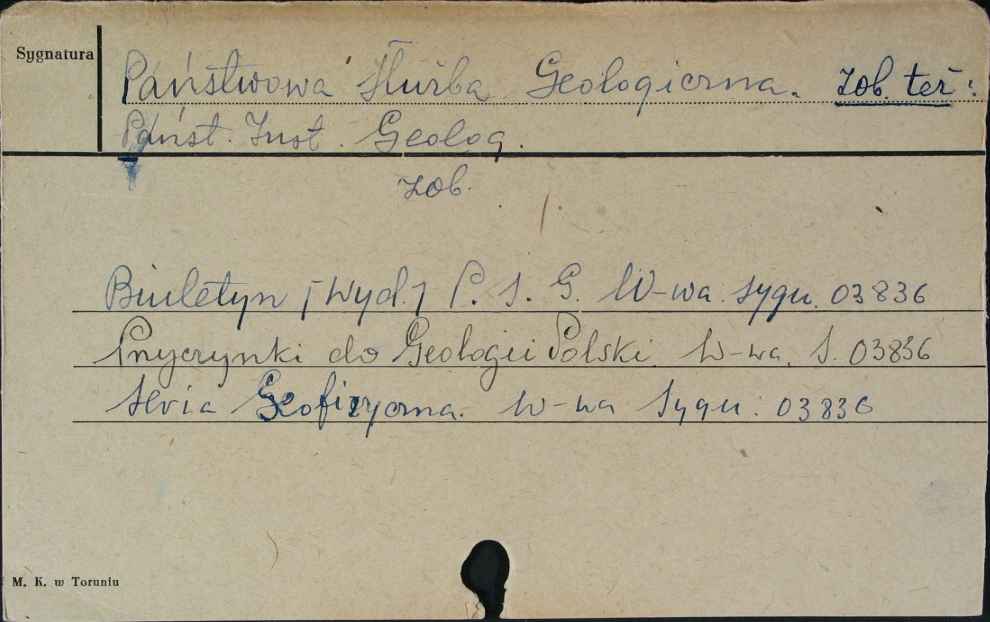 Sygnatura
Państwowa Służba Geologiczna. zob. też:
Państ. Inst. Geolog.
zob.
Biuletyn [Wyd.] P. S. G. W-wa. sygn. 03836
Przyczynki do Geologii Polski. W-wa. S. 03836
Seria Geofizyczna. W-wa Sygn: 03836
M. K. w Toruniu